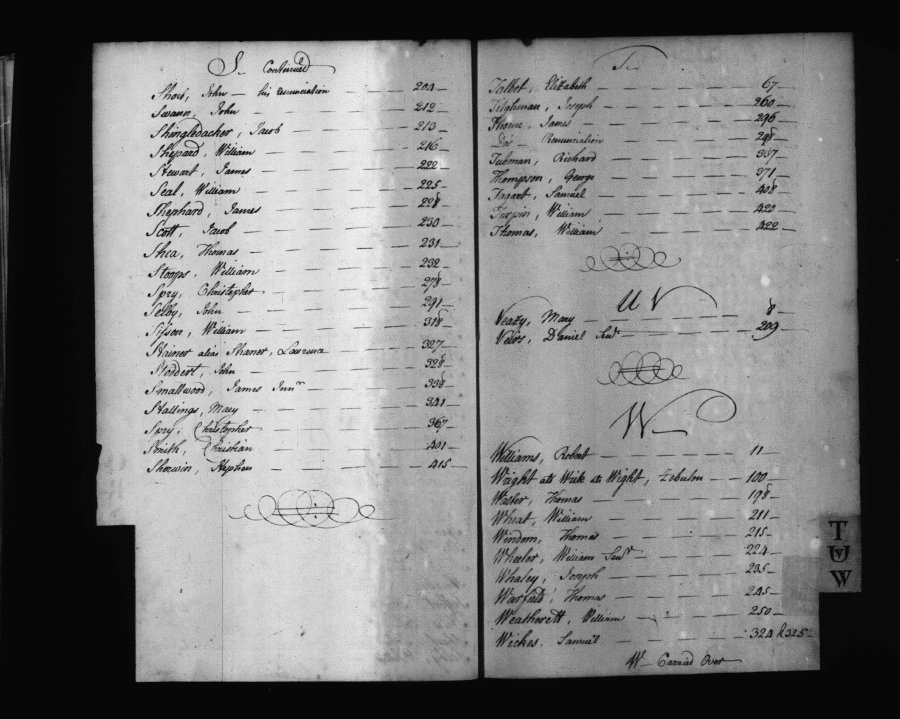 S. Continued
Short, John — his renunciation — 204
Swann, John — 212
Shinglebacker, Jacob — 213
Shepard, William — 216
Stewart, James — 222
Seal, William — 225
Shephard, James — 228
Scott, Jacob — 230
Shea, Thomas — 231
Stoops, William — 232
Spry, Christopher — 278
Selby, John — 291
Sisson, William — 318
Stainer alias Shaner, Lawrence — 327
Stoddert, John — 328
Smallwood, James Junr — 338
Stallings, Mary — 341
Spry, Christopher — 367
Smith, Christian — 401
Sherwin, Stephen — 415
T
Talbot, Elizabeth — 67
Tilghman, Joseph — 260
Thorne, James — 296
Do — Renunciation — 298
Tubman, Richard — 337
Thompson, George — 371
Taggart, Samuel — 408
Turpin, William — 420
Thomas, William — 422
U V
Veazy, Mary — 8
Daniel Senr — 209
W
Williams, Robert — 11
Wright als Wick als Wight, Zebulon — 100
Walter, Thomas — 198
Wheat, William — 211
Windom, Thomas — 215
Wheeler, William Senr — 224
Whaley, Joseph — 235
Warfield, Thomas — 245
Weatherett, William — 250
Wickes, Samuel — 324 & 325
W — Carried Over
T
UV
W